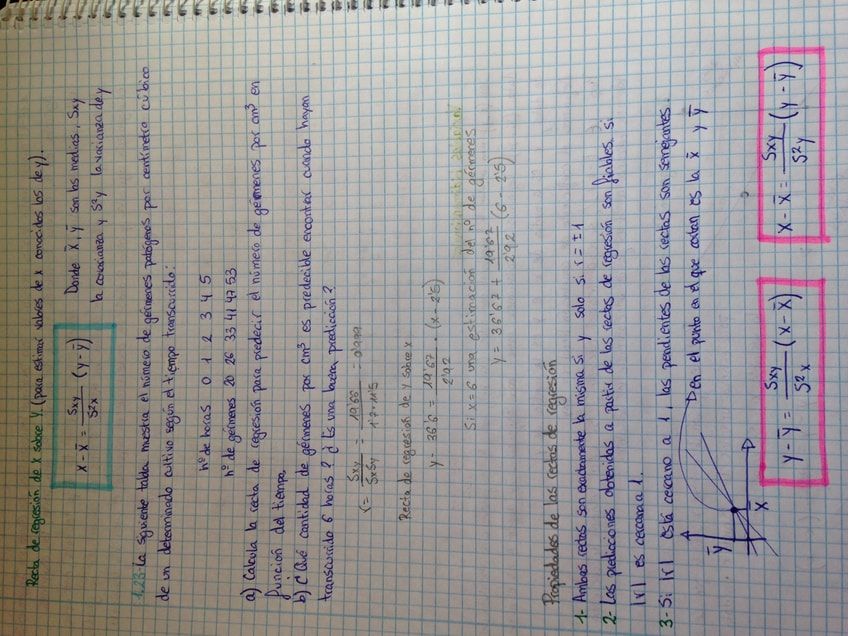 Recta de regresión de X sobre Y. (para estimar valores de x conocidos los de y).
x - x̄ = Sxy / S²x (y - ȳ)
Donde x̄, ȳ son las medias, Sxy
la covarianza y S²y la varianza de y
1.23- La siguiente tabla muestra el número de gérmenes patógenos por centímetro cúbico
de un determinado cultivo según el tiempo transcurrido:
nº de horas 0 1 2 3 4 5
nº de gérmenes 20 26 33 41 47 53
a) Calcula la recta de regresión para predecir el número de gérmenes por cm³ en
función del tiempo.
b) ¿Qué cantidad de gérmenes por cm³ es predecible encontrar cuando hayan
transcurrido 6 horas? ¿Es una buena predicción?
r = Sxy / SxSy = 19'66 / 1'7·11'5 = 0'999
Recta de regresión de y sobre x
y - 36'6 = 19'67 / 2'92 · (x - 2'5)
Si x = 6 una estimación del nº de gérmenes
y = 36'67 + 19'67 / 2'92 (6 - 2'5)
Propiedades de las rectas de regresión
1- Ambas rectas son exactamente la misma si y solo si r = ±1
2- Las predicciones obtenidas a partir de las rectas de regresión son fiables si
|r| es cercano a 1.
3- Si |r| está cercano a 1, las pendientes de las rectas son semejantes.
en el punto en el que cortan es la x̄ y ȳ
ȳ
x̄
y - ȳ = Sxy / S²x (x - x̄)
x - x̄ = Sxy / S²y (y - ȳ)